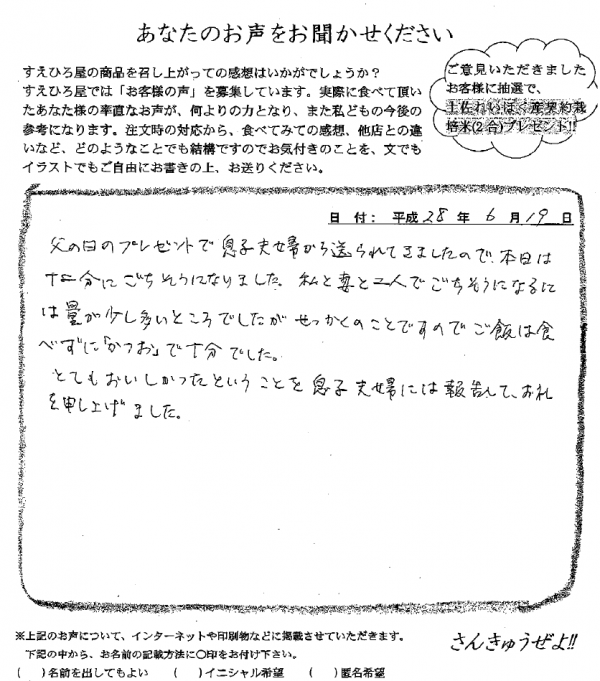 あなたのお声をお聞かせください
すえひろ屋の商品を召し上がっての感想はいかがでしょうか?
すえひろ屋では「お客様の声」を募集しています。実際に食べて頂い
たあなた様の率直なお声が、何よりの力となり、また私どもの今後の
参考になります。注文時の対応から、食べてみての感想、他店との違
いなど、どのようなことでも結構ですのでお気付きのことを、文でも
イラストでもご自由にお書きの上、お送りください。
ご意見いただきました
お客様に抽選で、
土佐れいほく産契約栽
培米(2合)プレゼント!!
日 付: 平成 28 年 6 月 19 日
父の日のプレゼントで息子夫婦から送られてきましたので、本日は
十二分にごちそうになりました。私と妻と二人でごちそうになるに
は量が少し多いところでしたが せっかくのことですので ご飯は食
べずに「かつお」で十分でした。
とてもおいしかったということを息子夫婦には報告して、お礼
を申し上げました。
※上記のお声について、インターネットや印刷物などに掲載させていただきます。
下記の中から、お名前の記載方法に〇印をお付け下さい。
( )名前を出してもよい ( )イニシャル希望 ( )匿名希望
さんきゅうぜよ!!